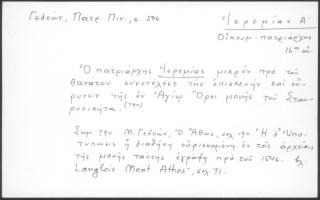 Γεδεών, Πατρ. Πιν., σ. 506
Ἱερεμίας Α´
Οἰκουμ. πατριάρχης
16ου αἰ.
Ὁ πατριάρχης Ἱερεμίας μικρόν πρό τοῦ
θανάτου συνετέλεσε τήν ἐπισκευήν καί εὔ-
ρυνσιν τῆς ἐν Ἁγίῳ Ὄρει μονῆς τοῦ Σταυ-
ρονικήτα. (790)
Σημ. 790. Μ. Γεδεών, Ὁ Ἄθως, σελ. 190. Ἡ δ' Ὑπο-
τύπωσις ἤ διαθήκη εὑρισκομένη ἐν τοῖς ἀρχείοις
τῆς μονῆς ταύτης ἐγράφη πρό τοῦ 1546.
Langlois Mont Athos, σελ. 71.